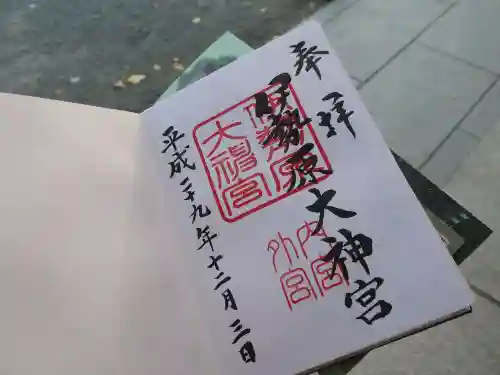 奉拝
伊勢原大神宮
伊勢原
大神宮
内宮
外宮
平成二十九年十二月三日